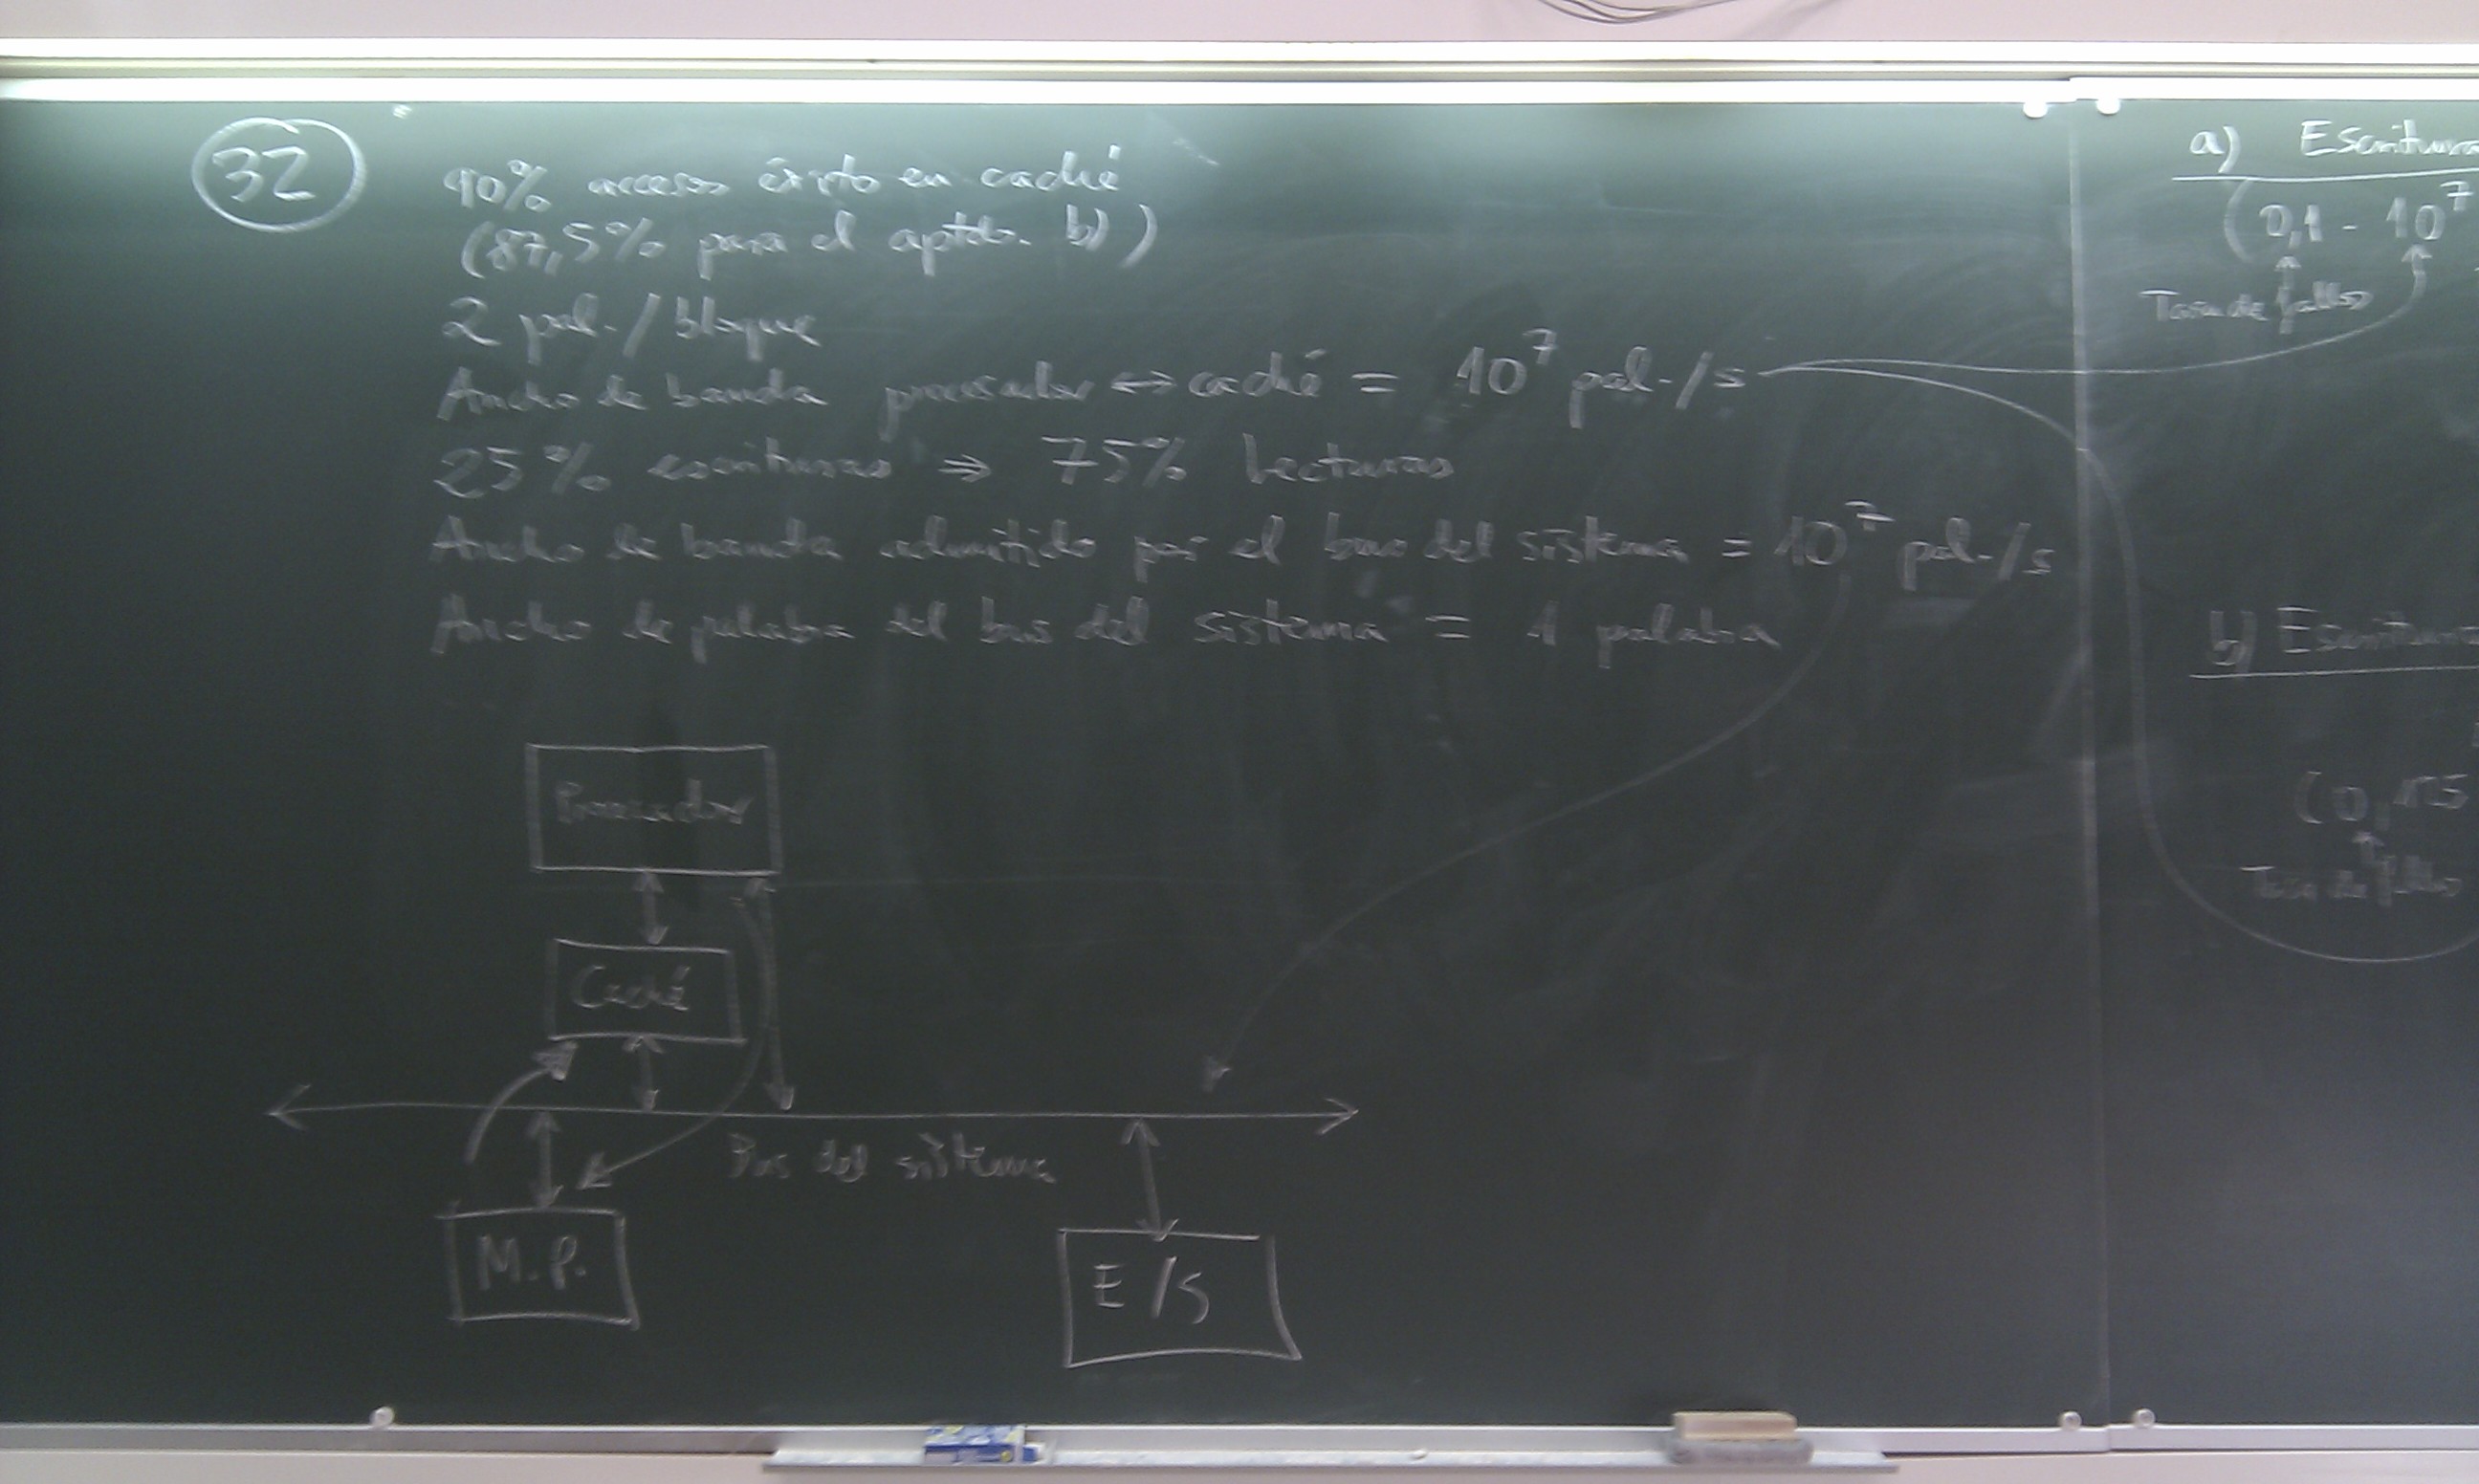 32
90% accesos éxito en caché
(87,5% para el aptdo. b))
2 pal./bloque
Ancho de banda procesador ↔ caché = 10⁷ pal./s
25% escrituras ⇒ 75% lecturas
Ancho de banda admitido por el bus del sistema = 10⁷ pal./s
Ancho de palabra del bus del sistema = 1 palabra
Procesador
Caché
Bus del sistema
M.P.
E/S
a) Escritura
(0,1 - 10⁷
Tasa de fallos
b) Escritura
Tasa de fallos